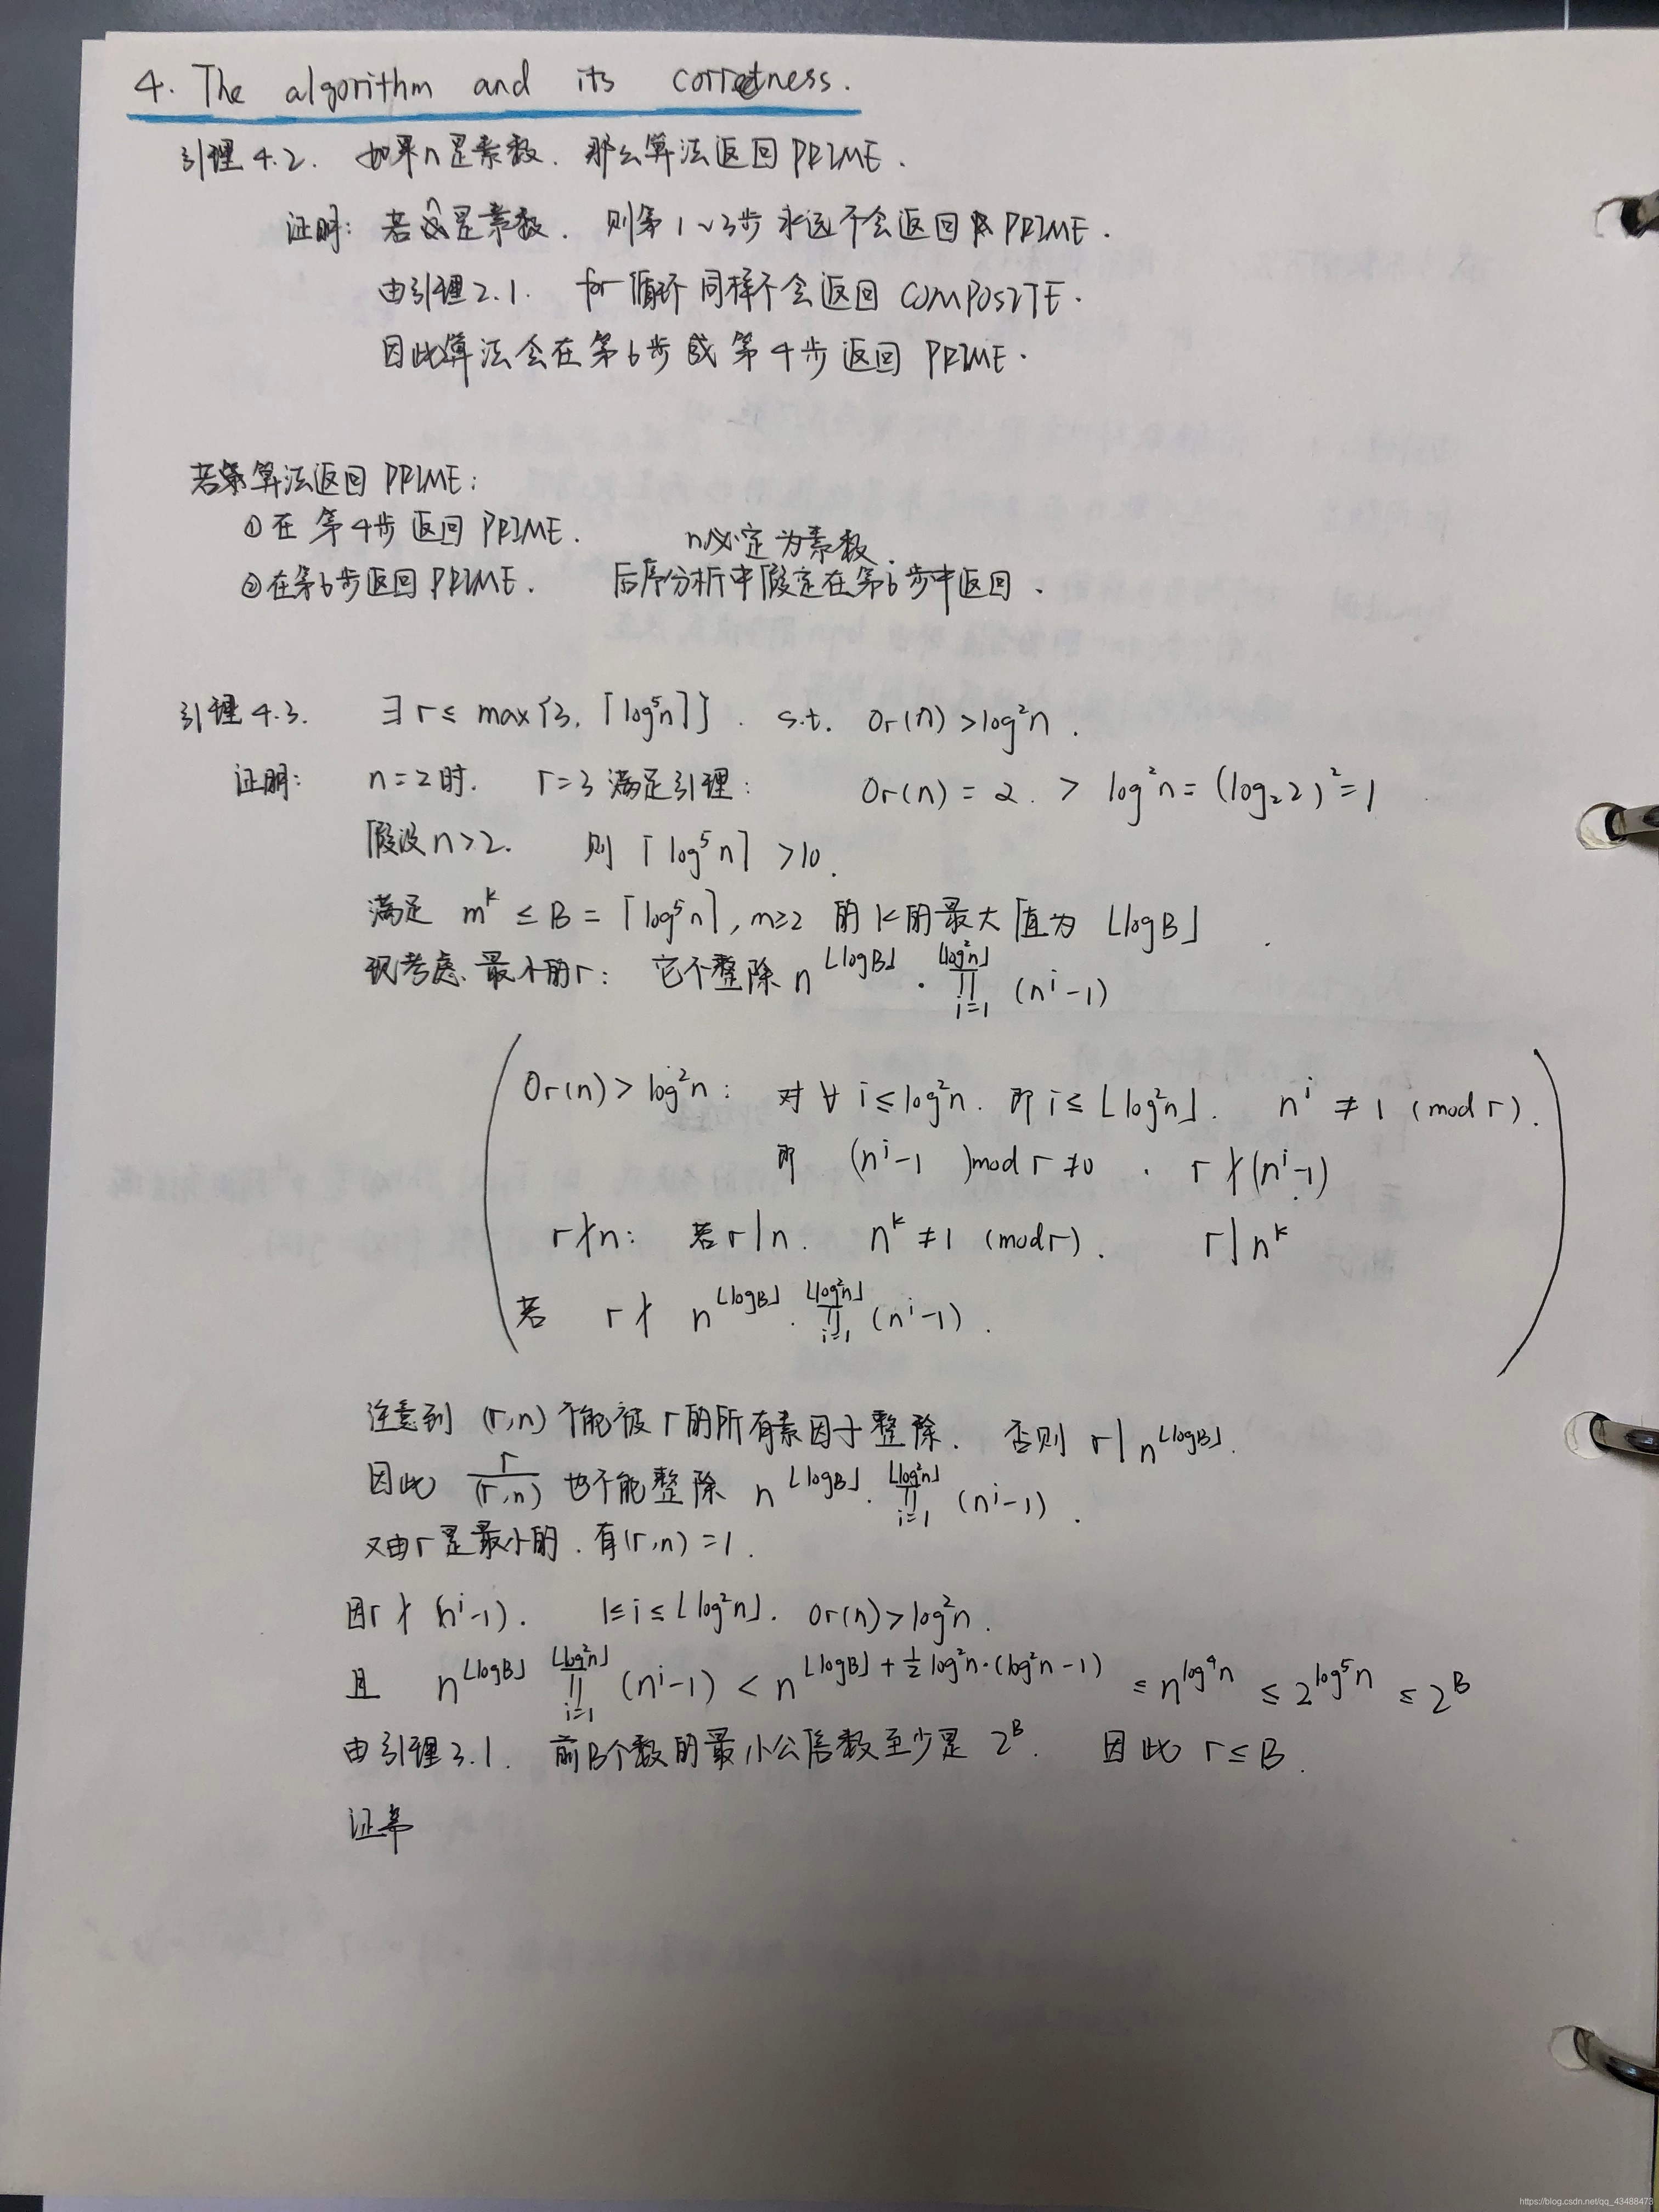 4. The algorithm and its corretness.
引理4.2. 如果n是素数. 那么算法返回 PRIME.
证明: 若n是素数. 则第1~3步永远不会返回 PRIME.
由引理2.1. for循环同样不会返回 COMPOSITE.
因此算法会在第6步或第4步返回 PRIME.
若算法返回 PRIME:
①在第4步返回 PRIME. n必定为素数.
②在第6步返回 PRIME. 后序分析中假定在第6步中返回.
引理4.3. ∃ r ≤ max{3, ⌈log⁵n⌉}. s.t. Or(n) > log²n.
证明: n=2时. r=3满足引理: Or(n) = 2. > log²n = (log₂2)² = 1
假设n>2. 则 ⌈log⁵n⌉ > 10.
满足 m^k ≤ B = ⌈log⁵n⌉, m≥2 的K的最大值为 ⌊logB⌋.
现考虑最小的r: 它不整除 n^⌊logB⌋ · ∏_{i=1}^{⌊log²n⌋} (n^i - 1)
Or(n) > log²n: 对∀ i ≤ log²n. 即 i ≤ ⌊log²n⌋. n^i ≢ 1 (mod r).
即 (n^i - 1) mod r ≠ 0. r ∤ (n^i - 1)
r ∤ n: 若 r | n. n^k ≢ 1 (mod r). r | n^k
若 r ∤ n^⌊logB⌋ · ∏_{i=1}^{⌊log²n⌋} (n^i - 1).
注意到 (r,n) 不能被r的所有素因子整除. 否则 r | n^⌊logB⌋.
因此 r/(r,n) 也不能整除 n^⌊logB⌋ · ∏_{i=1}^{⌊log²n⌋} (n^i - 1).
又由r是最小的. 有(r,n) = 1.
因r ∤ (n^i - 1). 1 ≤ i ≤ ⌊log²n⌋. Or(n) > log²n.
且 n^⌊logB⌋ ∏_{i=1}^{⌊log²n⌋} (n^i - 1) < n^{⌊logB⌋ + ½ log²n·(log²n - 1)} ≤ n^{log⁴n} ≤ 2^{log⁵n} ≤ 2^B
由引理3.1. 前B个数的最小公倍数至少是 2^B. 因此 r ≤ B.
证毕
https://blog.csdn.net/qq_43488473